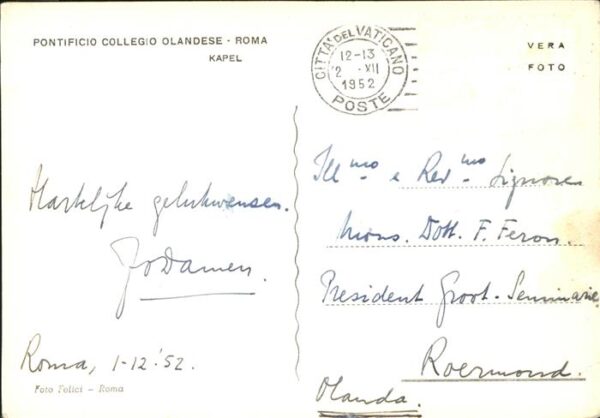 PONTIFICIO COLLEGIO OLANDESE - ROMA
KAPEL
CITTA' DEL VATICANO
12-13
2 · XII
1952
POSTE
VERA
FOTO
Hartelijke gelukwensen.
Jo Damen.
Roma, 1-12-'52.
Foto Felici - Roma
Ill.mo e Rev.mo Signore
Mons. Dott. F. Feron.
President Groot-Seminarie
Roermond.
Olanda.